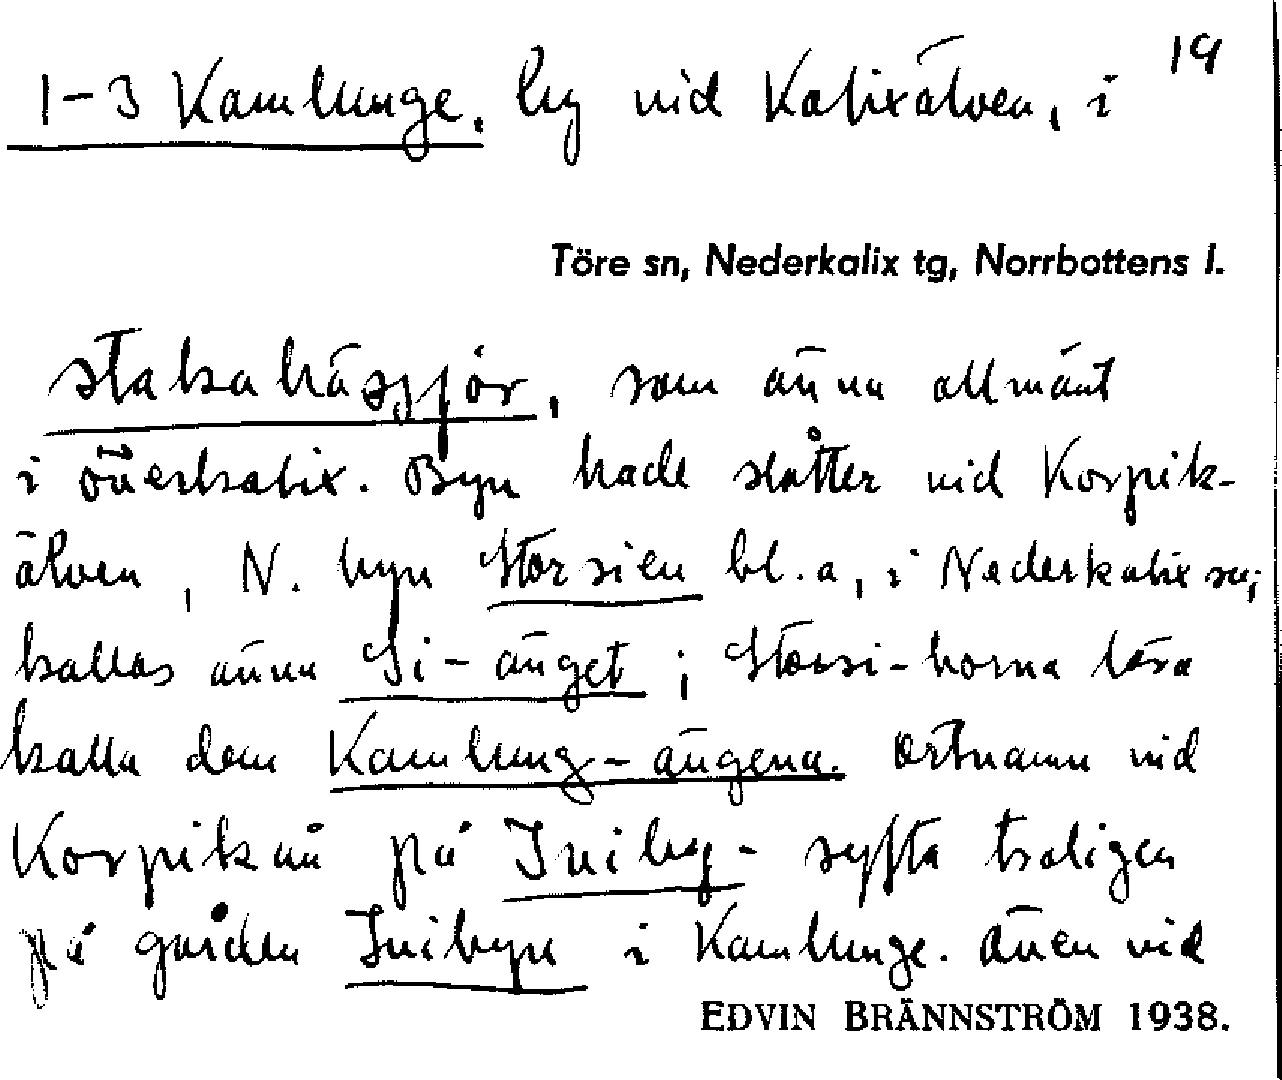 19
1-3 Kamlunge. by vid Kalixälven, i
Töre sn, Nederkalix tg, Norrbottens l.
som ännu allmänt
i överkalix. Byn hade slåtter vid Korpik-
älven, N. byn Storsien bl.a, i Nederkalix sn;
kallas ännu Si-änget; Storsi-borna lära
kalla dem Kamlung-ängena. Ortnamn vid
Korpikån på Iniby- syfta troligen
på gården Inibyn i Kamlunge. Även vid
EDVIN BRÄNNSTRÖM 1938.